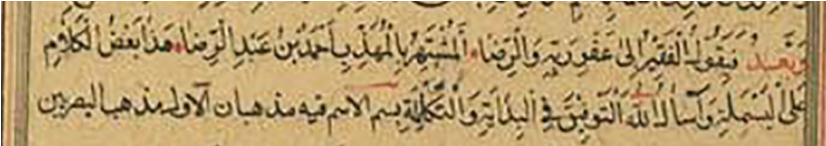 وبعد فيقول الفقير الى عفو ربه والرضا المشتهر بالمهذب احمد بن عبد الرضا هذا بعض الكلام
على البسملة واسأل الله التوفيق في البداية والتكملة بسم الاسم فيه مذهبان الاول مذهب البصريين